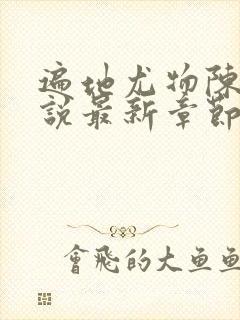 遍地尤物陳
說最新章節
會飛的大魚魚